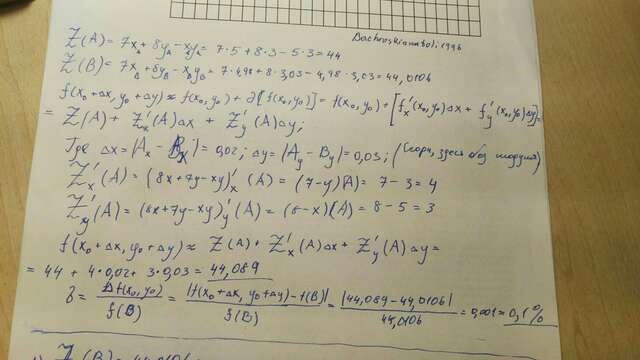 Bachroskiannatoli 1996
Z(A) = 7x_A + 8y_A - x_Ay_A = 7·5 + 8·3 - 5·3 = 44
Z(B) = 7x_B + 8y_B - x_By_B = 7·4,98 + 8·3,03 - 4,98·3,03 = 44,0106
f(x₀+Δx, y₀+Δy) ≈ f(x₀,y₀) + d[f(x₀,y₀)] = f(x₀,y₀) + [f'ₓ(x₀,y₀)Δx + f'_y(x₀,y₀)Δy] =
= Z(A) + Z'ₓ(A)Δx + Z'_y(A)Δy;
Где Δx = |Aₓ - Bₓ| = 0,02; Δy = |A_y - B_y| = 0,03; (Скорч, здесь без модуля)
Z'ₓ(A) = (8x+7y-xy)'ₓ(A) = (7-y)(A) = 7-3 = 4
Z'_y(A) = (8x+7y-xy)'_y(A) = (8-x)(A) = 8-5 = 3
f(x₀+Δx, y₀+Δy) ≈ Z(A) + Z'ₓ(A)Δx + Z'_y(A)Δy =
= 44 + 4·0,02 + 3·0,03 = 44,089
δ = Δf(x₀,y₀) / f(B) = |f(x₀+Δx, y₀+Δy) - f(B)| / f(B) = |44,089 - 44,0106| / 44,0106 = 0,001 = 0,1%